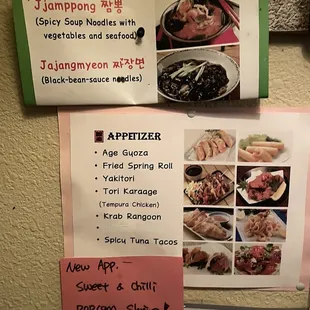 Jjamppong 짬뽕
(Spicy Soup Noodles with
vegetables and seafood)
Jajangmyeon 짜장면
(Black-bean-sauce noodles)
APPETIZER
• Age Gyoza
• Fried Spring Roll
• Yakitori
• Tori Karaage
(Tempura Chicken)
• Krab Rangoon
•
• Spicy Tuna Tacos
New App. -
Sweet & Chilli
POPCORN